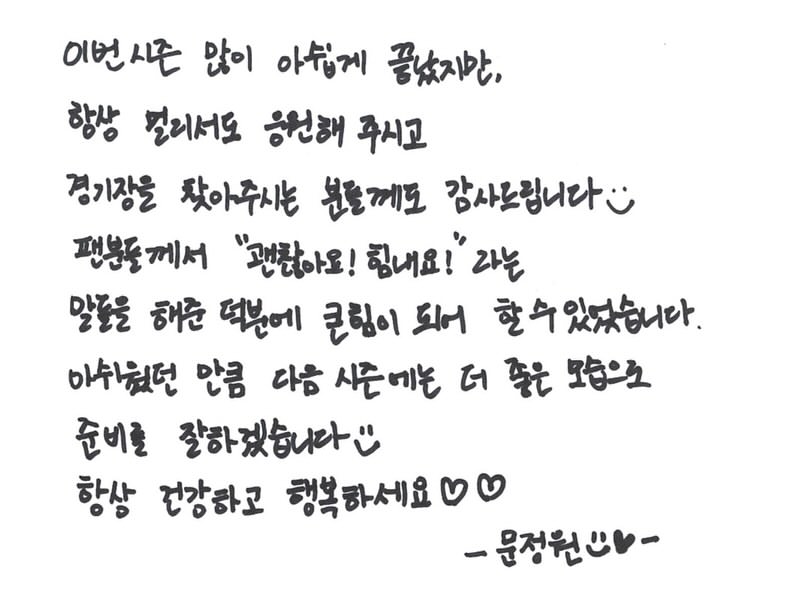 이번 시즌 많이 아쉽게 끝났지만,
항상 멀리서도 응원해 주시고
경기장을 찾아주시는 분들께도 감사드립니다
팬분들께서 "괜찮아요! 힘내요!" 라는
말들을 해준 덕분에 큰힘이 되어 할 수 있었습니다.
아쉬웠던 만큼 다음 시즌에는 더 좋은 모습으로
준비를 잘하겠습니다
항상 건강하고 행복하세요♡♡
- 문정원 ♥ -